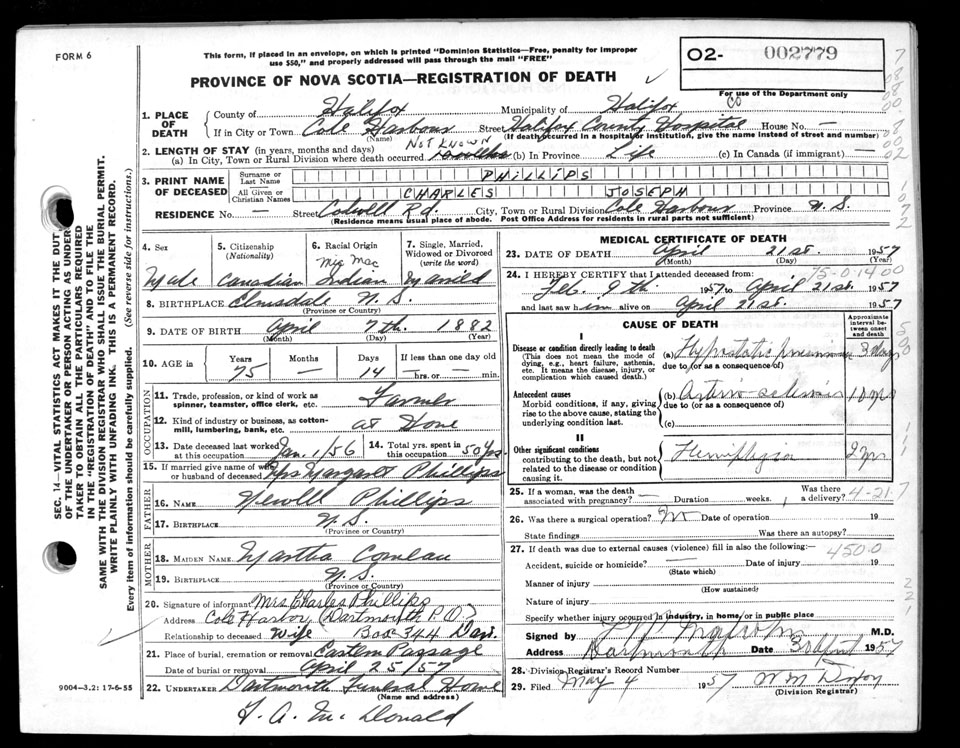 FORM 6
This form, if placed in an envelope, on which is printed "Dominion Statistics—Free, penalty for improper
use $50," and properly addressed will pass through the mail "FREE"
O2- 002779
For use of the Department only
PROVINCE OF NOVA SCOTIA—REGISTRATION OF DEATH
SEC. 14—VITAL STATISTICS ACT MAKES IT THE DUTY
OF THE UNDERTAKER OR PERSON ACTING AS UNDER
TAKER TO OBTAIN ALL THE PARTICULARS REQUIRED
IN THE "REGISTRATION OF DEATH" AND TO FILE THE
SAME WITH THE DIVISION REGISTRAR WHO SHALL ISSUE THE BURIAL PERMIT.
WRITE PLAINLY WITH UNFADING INK. THIS IS A PERMANENT RECORD.
Every item of information should be carefully supplied. (See reverse side for instructions.)
1. PLACE OF DEATH
County of Halifax Municipality of Halifax Co
If in City or Town Cole Harbour Street Halifax County Hospital House No. —
(Name) (If death occurred in a hospital or institution, give the name instead of street and number)
2. LENGTH OF STAY (in years, months and days) NOT KNOWN
(a) In City, Town or Rural Division where death occurred (b) In Province Life (c) In Canada (if immigrant) —
3. PRINT NAME OF DECEASED
Surname or Last Name PHILLIPS
All Given or Christian Names CHARLES JOSEPH
RESIDENCE No. — Street Colwell Rd. City, Town or Rural Division Cole Harbour Province N.S.
Residence means usual place of abode. Post Office Address for residents in rural parts not sufficient)
4. Sex 5. Citizenship (Nationality) 6. Racial Origin 7. Single, Married, Widowed or Divorced (write the word)
Male Canadian Mic Mac Indian Married
8. BIRTHPLACE Elmsdale N.S.
(Province or Country)
9. DATE OF BIRTH April 7th. 1882
(Month) (Day) (Year)
10. AGE in Years Months Days If less than one day
75 14 —hrs. or —min.
OCCUPATION
11. Trade, profession, or kind of work as
spinner, teamster, office clerk, etc. Farmer
12. Kind of industry or business, as cotton-
mill, lumbering, bank, etc. at Home
13. Date deceased last worked at this occupation Jan. 1/56 14. Total yrs. spent in this occupation 50 yrs
15. If married give name of wife or husband of deceased Mrs Margaret Phillips
FATHER
16. NAME Newell Phillips
17. BIRTHPLACE N.S.
(Province or Country)
MOTHER
18. MAIDEN NAME Martha Comeau
19. BIRTHPLACE N.S.
(Province or Country)
20. Signature of informant Mrs Charles Phillips
Address Cole Harbor (Dartmouth P.O)
Relationship to deceased Wife Box 344 Dart.
21. Place of burial, cremation or removal Eastern Passage
Date of burial or removal April 25/57
22. UNDERTAKER Dartmouth Funeral Home
(Name and address)
9004—3.2: 17-6-55
F. A. McDonald
MEDICAL CERTIFICATE OF DEATH
23. DATE OF DEATH April 21st. 1957
(Month) (Day) (Year)
75-0-14 00
24. I HEREBY CERTIFY that I attended deceased from:
Feb. 9th 1957 to April 21st. 1957
and last saw him alive on April 21st. 1957
CAUSE OF DEATH
Approximate interval between onset and death
I
Disease or condition directly leading to death
(This does not mean the mode of
dying, e.g., heart failure, asthenia,
etc. It means the disease, injury, or
complication which caused death.)
(a) Hypostatic pneumonia 3 days
due to (or as a consequence of)
Antecedent causes
Morbid conditions, if any, giving
rise to the above cause, stating the
underlying condition last.
(b) Arterio sclerosis 10 yrs
due to (or as a consequence of)
(c)
II
Other significant conditions
contributing to the death, but not
related to the disease or condition
causing it.
Hemiplegia 2 yrs
25. If a woman, was the death associated with pregnancy? — Duration weeks. Was there a delivery?
4-21-7
26. Was there a surgical operation? No Date of operation 19
State findings Was there an autopsy?
27. If death was due to external causes (violence) fill in also the following:— 450.0
Accident, suicide or homicide? — Date of injury 19
(State which)
Manner of injury
(How sustained)
Nature of injury
Specify whether injury occurred in industry, in home, or in public place
Signed by M.D.
Address Dartmouth Date 30 April 1957
28. Division Registrar's Record Number
29. Filed May 4 1957 W M Dixon
(Division Registrar)